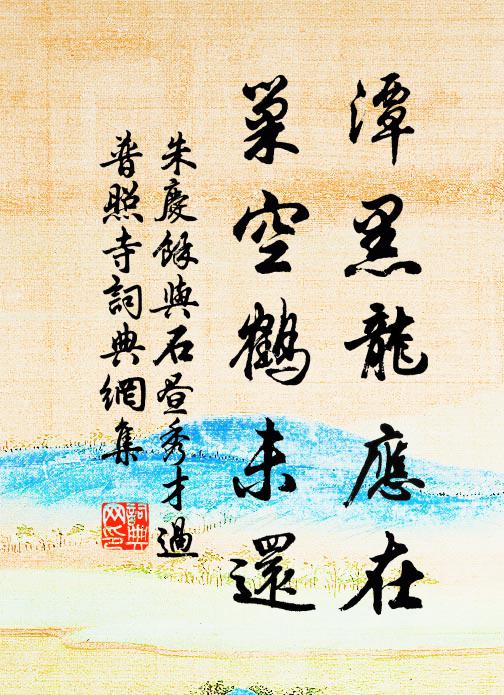 潭黑龍應在
巢空鶴未還
朱慶餘與石晝秀才過
普照寺詞典網集
詞典
网印